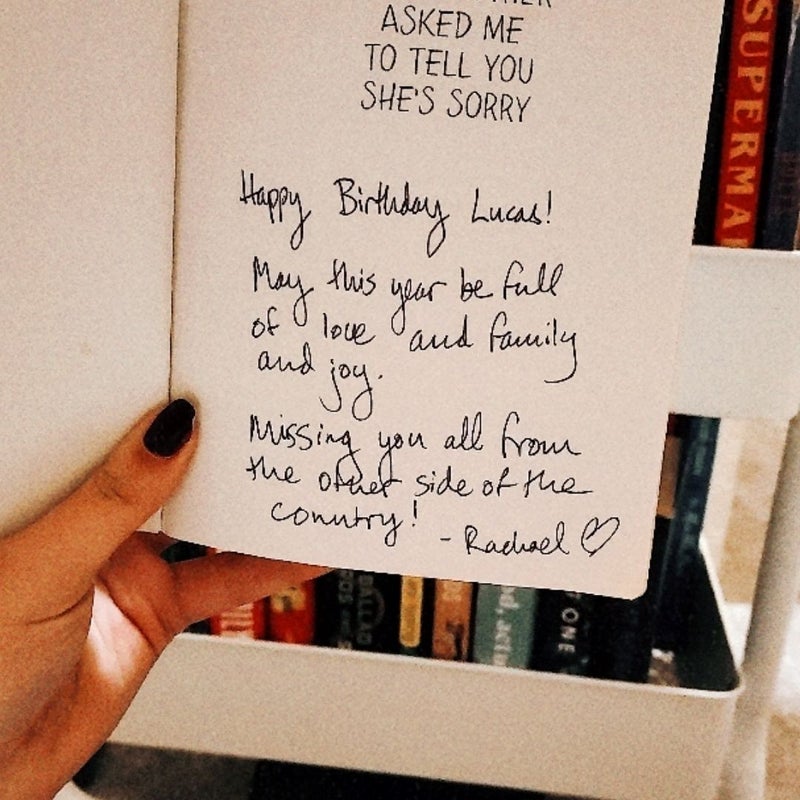 ASKED ME
TO TELL YOU
SHE'S SORRY
Happy Birthday Lucas!
May this year be full
of love and family
and joy.
Missing you all from
the other side of the
country!
- Rachael ♡
SUPERMA
ONE